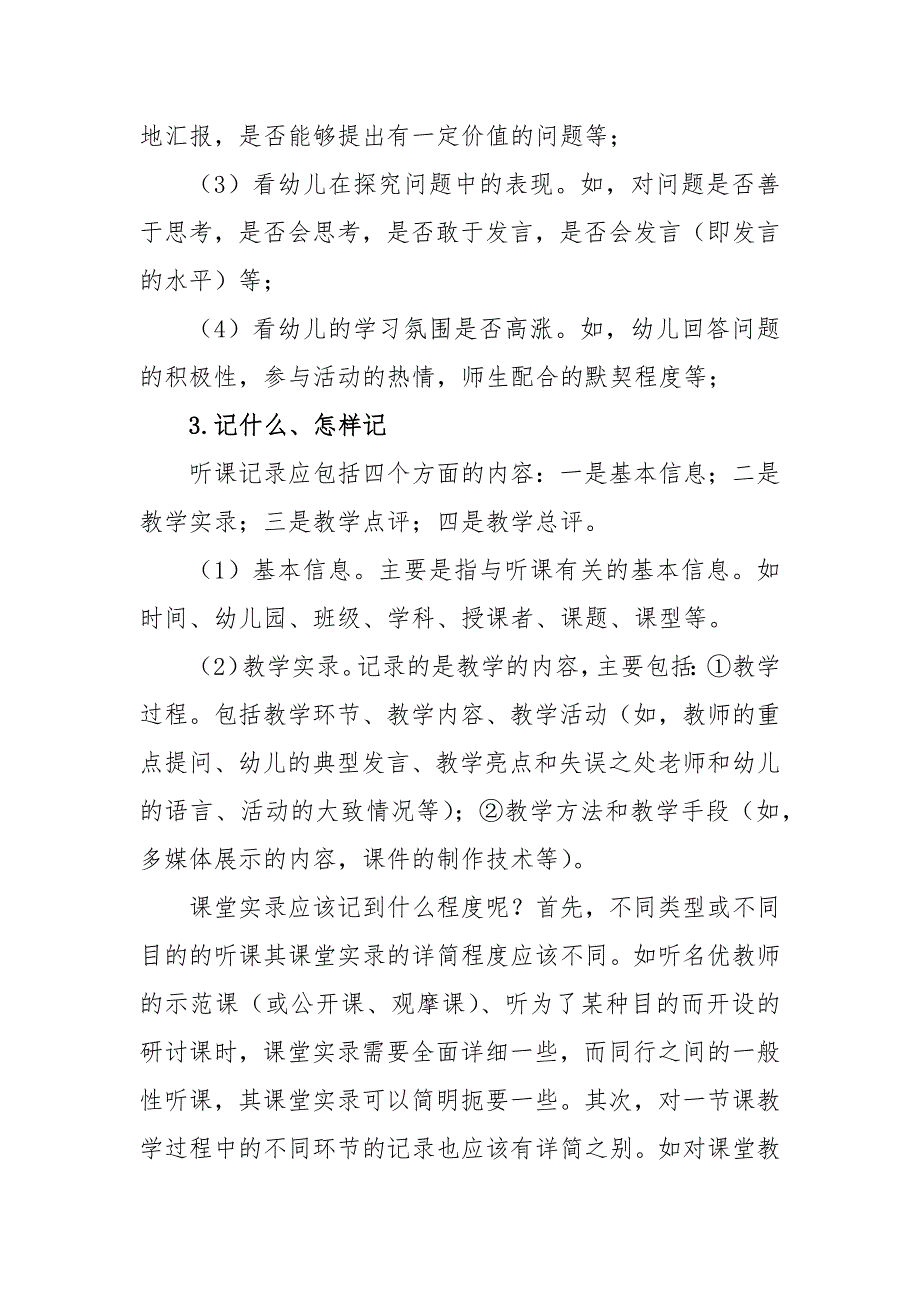 地汇报，是否能够提出有一定价值的问题等；
（3）看幼儿在探究问题中的表现。如，对问题是否善
于思考，是否会思考，是否敢于发言，是否会发言（即发言
的水平）等；
（4）看幼儿的学习氛围是否高涨。如，幼儿回答问题
的积极性，参与活动的热情，师生配合的默契程度等；
3.记什么、怎样记
听课记录应包括四个方面的内容：一是基本信息；二是
教学实录；三是教学点评；四是教学总评。
（1）基本信息。主要是指与听课有关的基本信息。如
时间、幼儿园、班级、学科、授课者、课题、课型等。
（2）教学实录。记录的是教学的内容，主要包括：①教学
过程。包括教学环节、教学内容、教学活动（如，教师的重
点提问、幼儿的典型发言、教学亮点和失误之处老师和幼儿
的语言、活动的大致情况等）；②教学方法和教学手段（如，
多媒体展示的内容，课件的制作技术等）。
课堂实录应该记到什么程度呢？首先，不同类型或不同
目的的听课其课堂实录的详简程度应该不同。如听名优教师
的示范课（或公开课、观摩课）、听为了某种目的而开设的
研讨课时，课堂实录需要全面详细一些，而同行之间的一般
性听课，其课堂实录可以简明扼要一些。其次，对一节课教
学过程中的不同环节的记录也应该有详简之别。如对课堂教